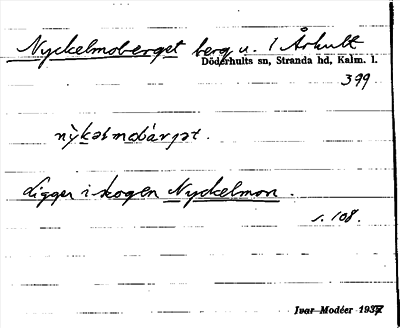 Nyckelmoberget berg u. 1 Århult
Döderhults sn, Stranda hd, Kalm. l.
399
nỳkəlmobàrjət.
Ligger i skogen Nyckelmon.
s. 108.
Ivar Modéer 1937